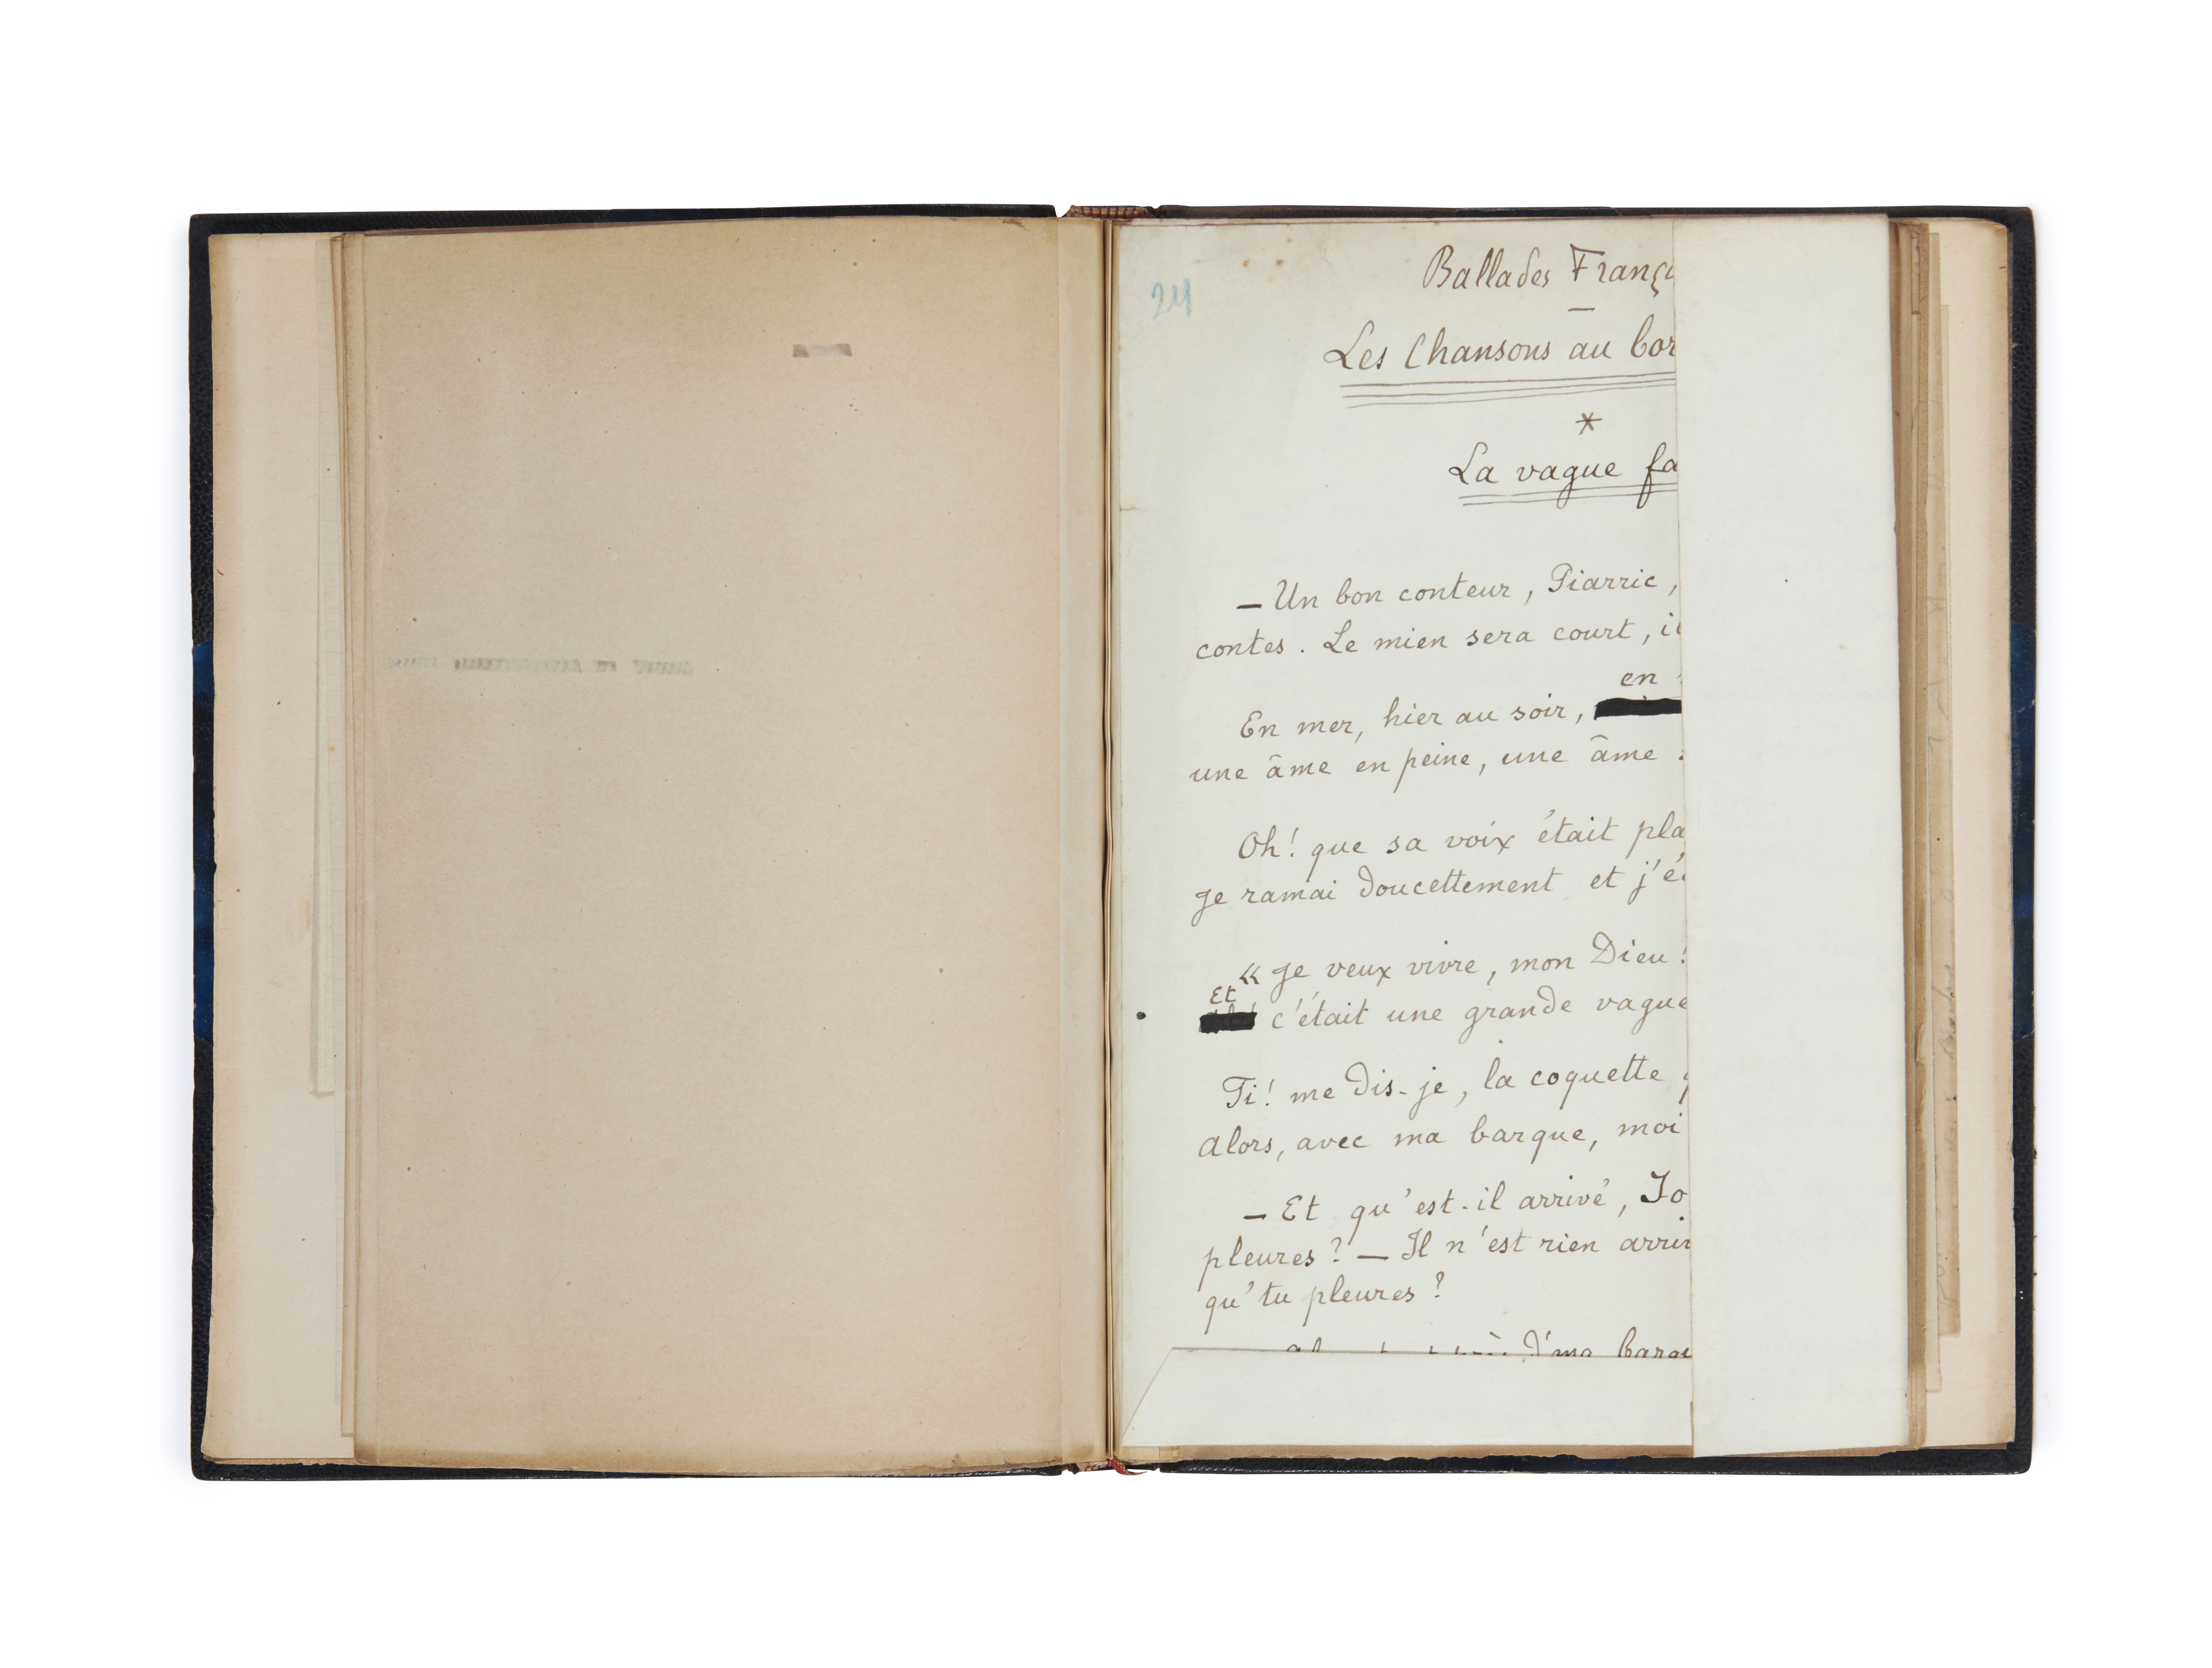 24
Ballades Franç
Les Chansons au bor
*
La vague fa
— Un bon conteur, Piarric,
contes. Le mien sera court, il
en
En mer, hier au soir,
une âme en peine, une âme
Oh! que sa voix était pla
Je ramai doucettement et j'é
« Je veux vivre, mon Dieu!
Et
c'était une grande vague
Ti! me dis-je, la coquette
Alors, avec ma barque, moi
— Et qu'est-il arrivé, Jo
pleures? — Il n'est rien arriv
qu'tu pleures?
d'ma barqu